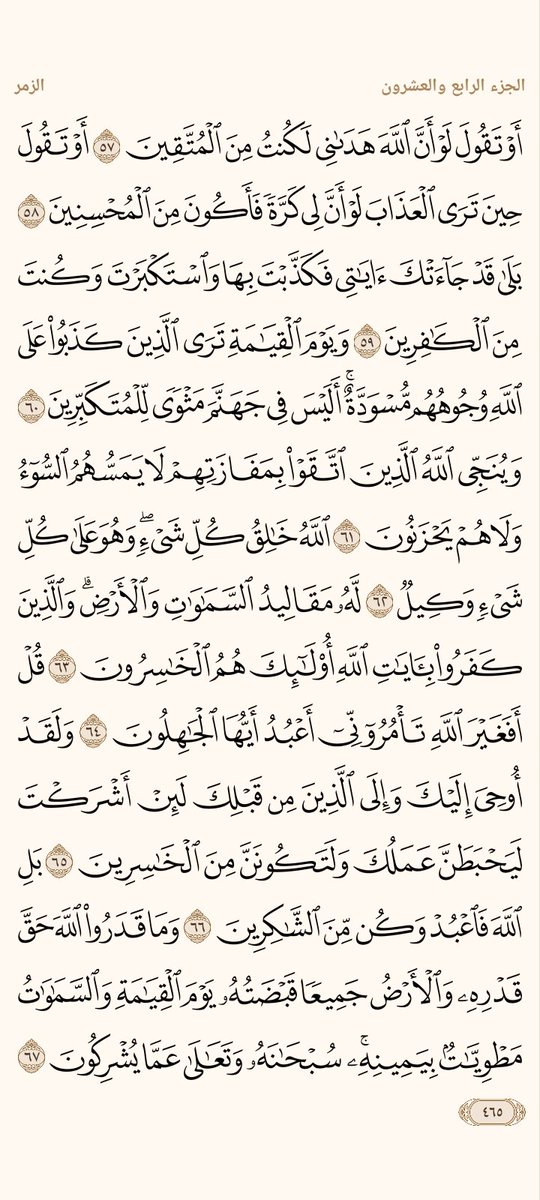 الجزء الرابع والعشرون الزمر
أَوْ تَقُولَ لَوْ أَنَّ ٱللَّهَ هَدَىٰنِى لَكُنتُ مِنَ ٱلْمُتَّقِينَ ٥٧ أَوْ تَقُولَ
حِينَ تَرَى ٱلْعَذَابَ لَوْ أَنَّ لِى كَرَّةً فَأَكُونَ مِنَ ٱلْمُحْسِنِينَ ٥٨
بَلَىٰ قَدْ جَآءَتْكَ ءَايَٰتِى فَكَذَّبْتَ بِهَا وَٱسْتَكْبَرْتَ وَكُنتَ
مِنَ ٱلْكَٰفِرِينَ ٥٩ وَيَوْمَ ٱلْقِيَٰمَةِ تَرَى ٱلَّذِينَ كَذَبُوا۟ عَلَى
ٱللَّهِ وُجُوهُهُم مُّسْوَدَّةٌ ۚ أَلَيْسَ فِى جَهَنَّمَ مَثْوًى لِّلْمُتَكَبِّرِينَ ٦٠
وَيُنَجِّى ٱللَّهُ ٱلَّذِينَ ٱتَّقَوْا۟ بِمَفَازَتِهِمْ لَا يَمَسُّهُمُ ٱلسُّوٓءُ
وَلَا هُمْ يَحْزَنُونَ ٦١ ٱللَّهُ خَٰلِقُ كُلِّ شَىْءٍ ۖ وَهُوَ عَلَىٰ كُلِّ
شَىْءٍ وَكِيلٌ ٦٢ لَّهُۥ مَقَالِيدُ ٱلسَّمَٰوَٰتِ وَٱلْأَرْضِ ۗ وَٱلَّذِينَ
كَفَرُوا۟ بِـَٔايَٰتِ ٱللَّهِ أُو۟لَٰٓئِكَ هُمُ ٱلْخَٰسِرُونَ ٦٣ قُلْ
أَفَغَيْرَ ٱللَّهِ تَأْمُرُوٓنِّىٓ أَعْبُدُ أَيُّهَا ٱلْجَٰهِلُونَ ٦٤ وَلَقَدْ
أُوحِىَ إِلَيْكَ وَإِلَى ٱلَّذِينَ مِن قَبْلِكَ لَئِنْ أَشْرَكْتَ
لَيَحْبَطَنَّ عَمَلُكَ وَلَتَكُونَنَّ مِنَ ٱلْخَٰسِرِينَ ٦٥ بَلِ
ٱللَّهَ فَٱعْبُدْ وَكُن مِّنَ ٱلشَّٰكِرِينَ ٦٦ وَمَا قَدَرُوا۟ ٱللَّهَ حَقَّ
قَدْرِهِۦ وَٱلْأَرْضُ جَمِيعًا قَبْضَتُهُۥ يَوْمَ ٱلْقِيَٰمَةِ وَٱلسَّمَٰوَٰتُ
مَطْوِيَّٰتٌۢ بِيَمِينِهِۦ ۚ سُبْحَٰنَهُۥ وَتَعَٰلَىٰ عَمَّا يُشْرِكُونَ ٦٧
٤٦٥